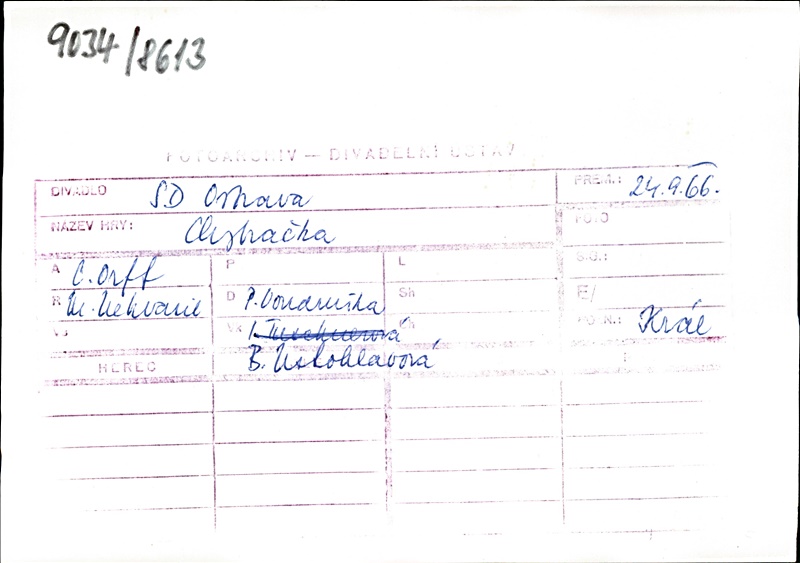 9034/8613
FOTOARCHIV — DIVADELNÍ ÚSTAV
DIVADLO SD Ostrava PREM.: 24.9.66.
NÁZEV HRY: Chytračka FOTO
A C. Orff P L S.G.:
R D P. Vondruška Sh E/
Vs Vk
POZN.: Král
B.
HEREC